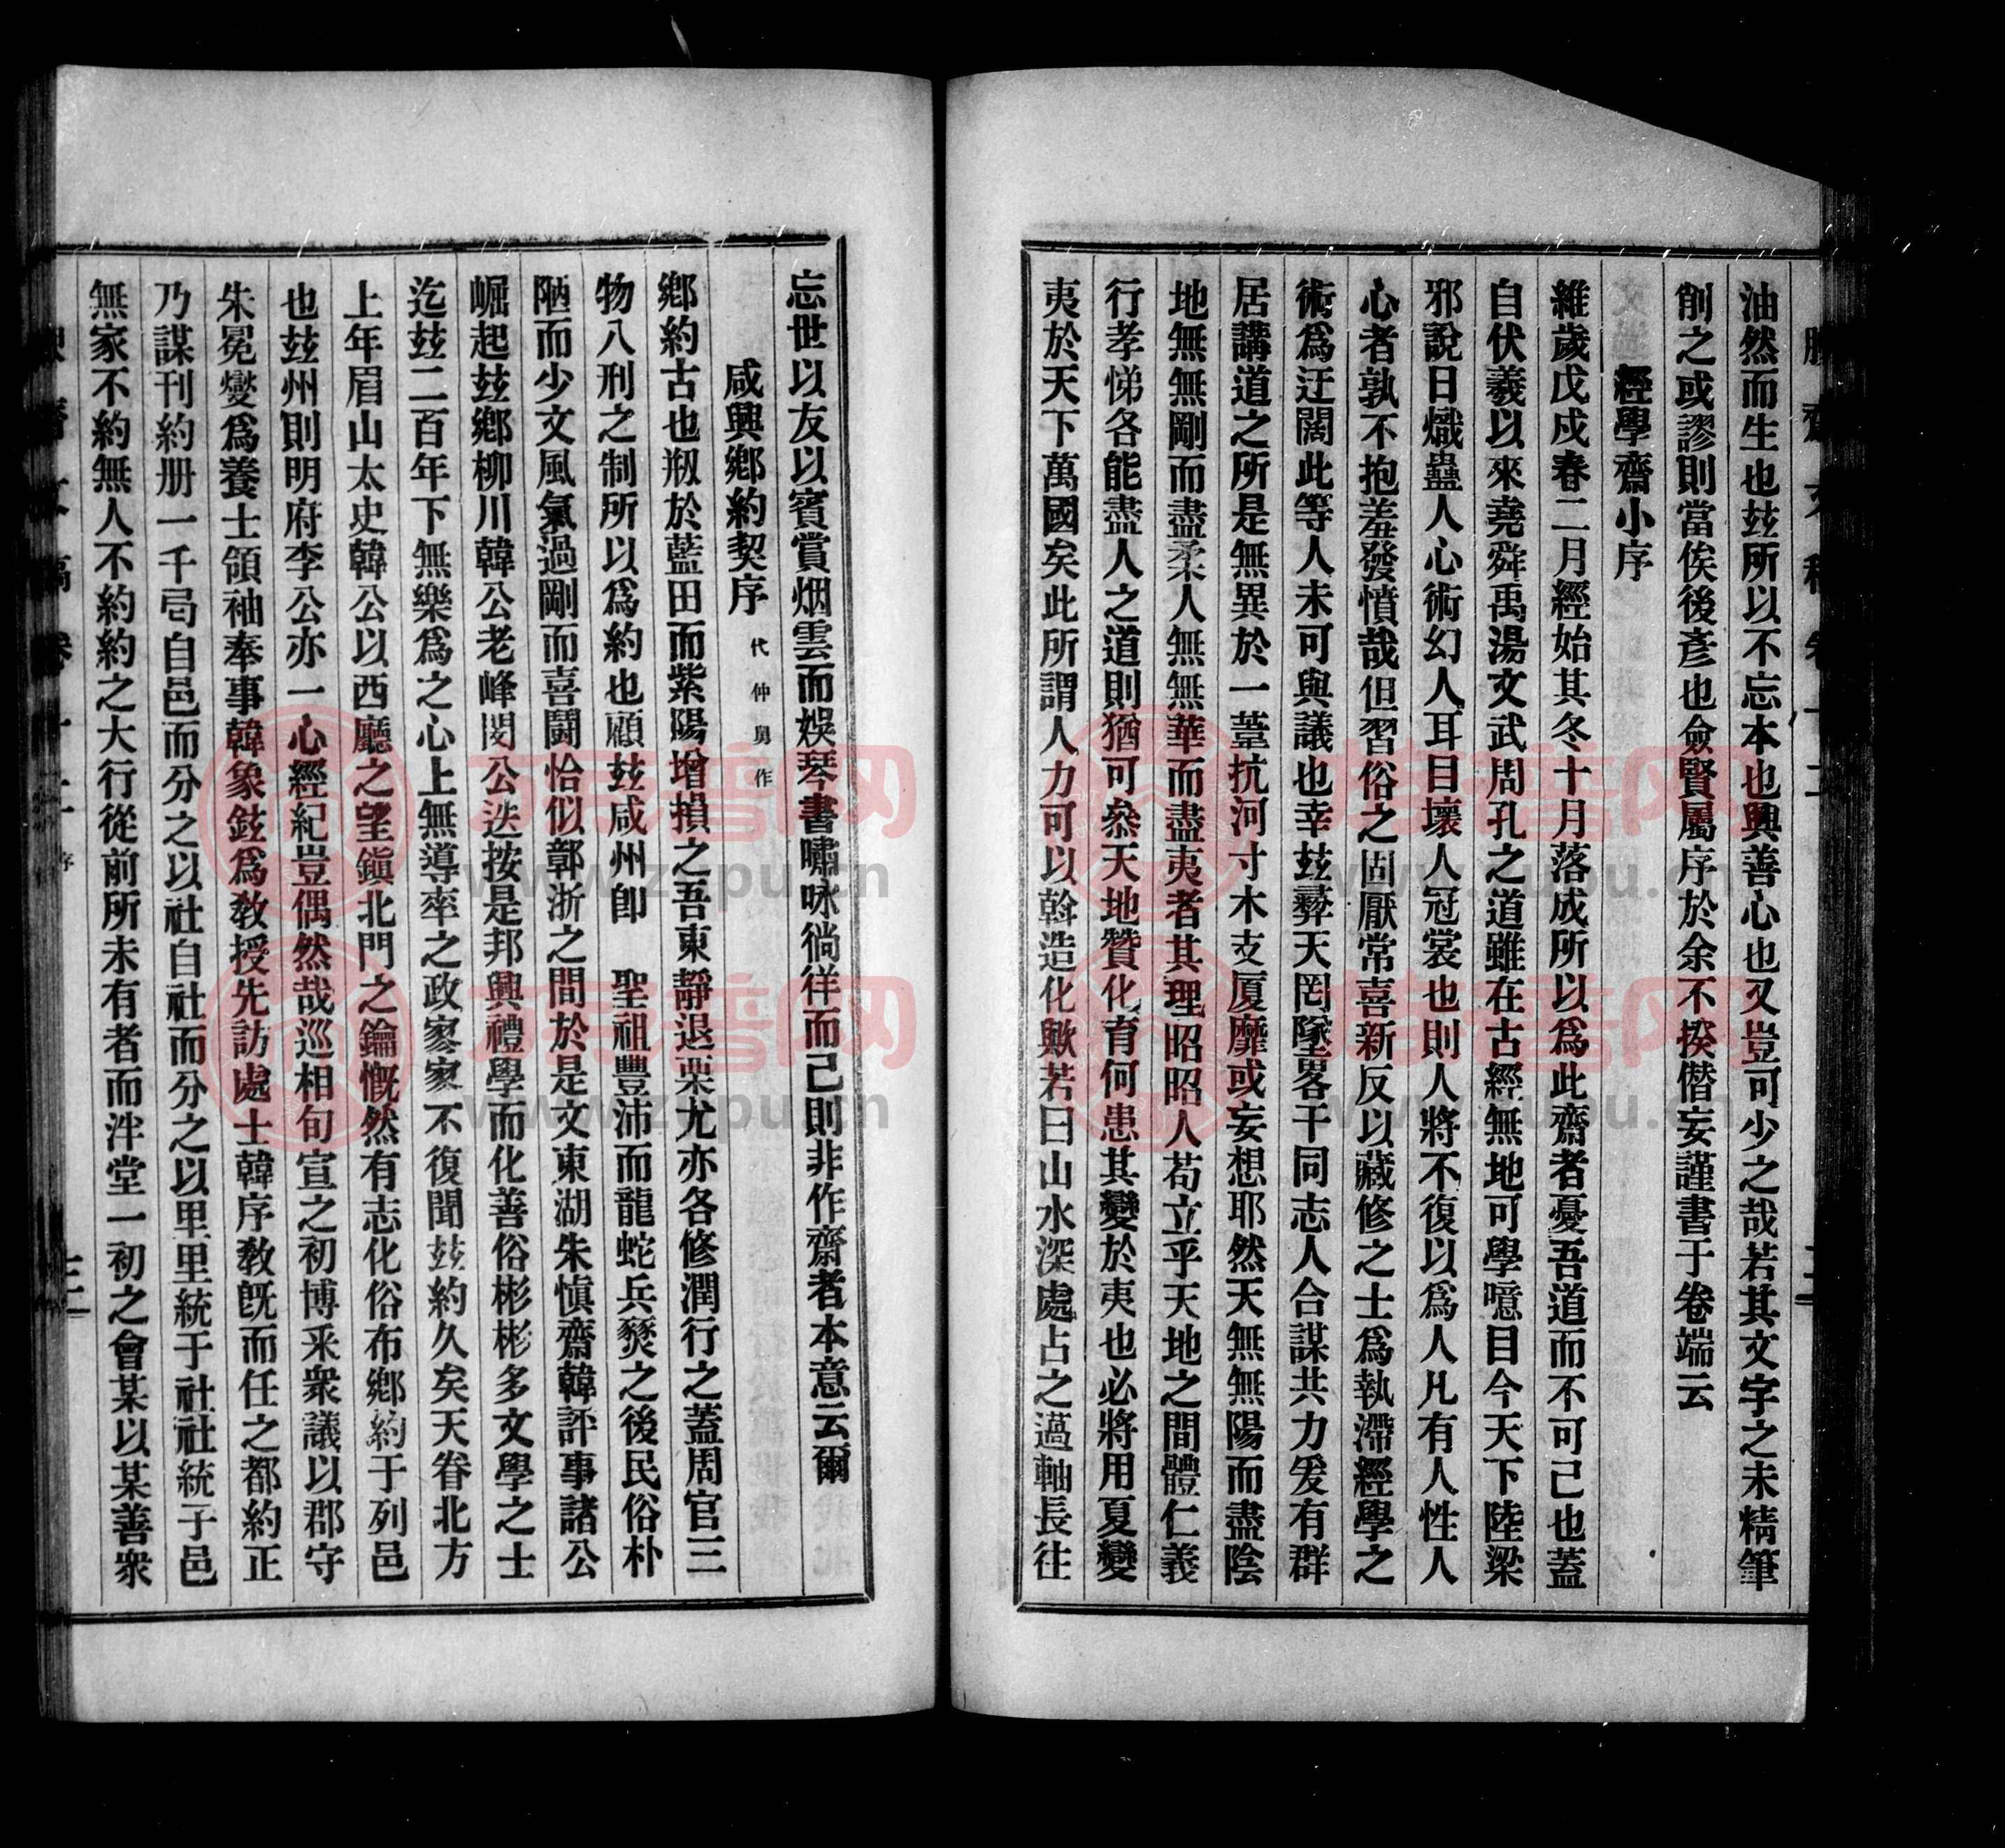 油然而生也玆所以不忘本也興善心也又豈可少之哉若其文字之未精筆
削之或謬則當俟後彥也僉賢屬序於余不揆僭妄謹書于卷端云
經學齋小序
維歲戊戍春二月經始其冬十月落成所以爲此齋者憂吾道而不可己也蓋
自伏羲以來堯舜禹湯文武周孔之道雖在古經無地可學噫目今天下陸梁
邪說日熾蠱人心術幻人耳目壞人冠裳也則人將不復以爲人凡有人性人
心者孰不抱羞發憤哉但習俗之固厭常喜新反以藏修之士爲執滯經學之
術爲迂闊此等人未可與議也幸玆彜天罔墜畧干同志人合謀共力爰有群
居講道之所是無異於一葦抗河寸木支厦靡或妄想耶然天無無陽而盡陰
地無無剛而盡柔人無無華而盡夷者其理昭昭人苟立乎天地之間體仁義
行孝悌各能盡人之道則猶可叅天地贊化育何患其變於夷也必將用夏變
夷於天下萬國矣此所謂人力可以斡造化歟若曰山水深處占之薖軸長往
忘世以友以賓賞烟雲而娛琴書嘯咏徜徉而己則非作齋者本意云爾
咸興鄕約契序 代仲舅作
鄕約古也刱於藍田而紫陽增損之吾東靜退栗尤亦各修潤行之蓋周官三
物八刑之制所以爲約也顧玆咸州卽 聖祖豐沛而龍蛇兵燹之後民俗朴
陋而少文風氣過剛而喜鬪恰似鄣浙之間於是文東湖朱愼齋韓評事諸公
崛起玆鄕柳川韓公老峰閔公迭按是邦興禮學而化善俗彬彬多文學之士
迄玆二百年下無樂爲之心上無導率之政寥寥不復聞玆約久矣天眷北方
上年眉山太史韓公以西廳之望鎭北門之鑰慨然有志化俗布鄕約于列邑
也玆州則明府李公亦一心經紀豈偶然哉巡相旬宣之初博采衆議以郡守
朱冕燮爲養士領袖奉事韓象鉉爲敎授先訪處士韓序敎旣而任之都約正
乃謀刊約册一千局自邑而分之以社自社而分之以里里統于社社統于邑
無家不約無人不約約之大行從前所未有者而泮堂一初之會某以某善衆